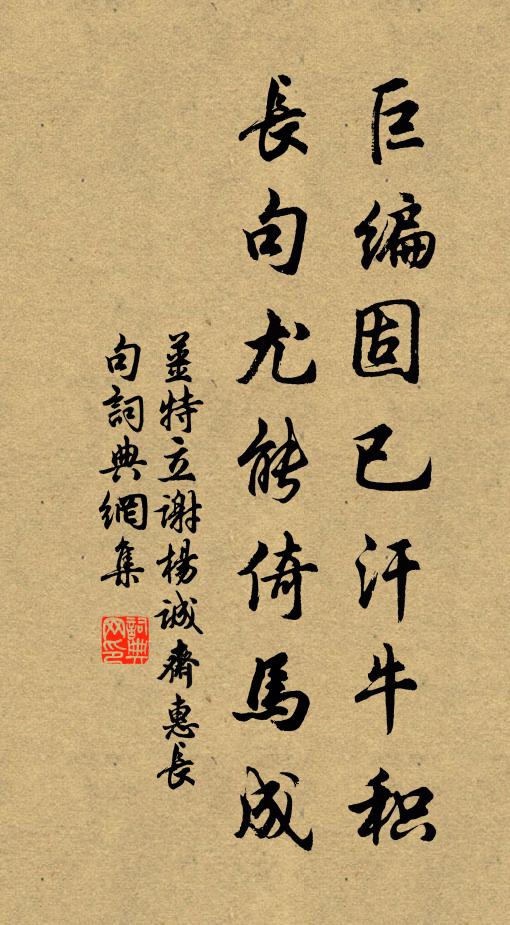 巨编固已汗牛积
長句尤能倚馬成
薑特立谢楊誠齋惠長
句詞典網集
詞典网印